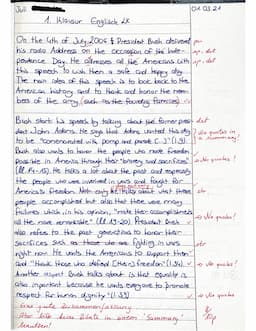 Juli
01.03.21
1. Klausur Englisch LK
On the 4th of July 2006 President Bush delivered
his radio Address on the occasion of the Inde-
pendence Day. He adresses all the Americans with
this speech to wish them a safe and happy day.
The main idea of this speech is to look back to the
American history and to thank and honor the mem-
bers of the army (such as the founding families).
Bush starts his speech by talking about the former pres-
ident John Adams. He says that Adams united this day
to be "commemorated with pomp and parade (...)" (l.3).
Bush also wants to honor the people who made freedom
possible in America through their "bravery and sacrifices"
He talks a lot about the past and expresses
the people who were involved in wars and fought for
America's freedom. Not only he talks about what these
people accomplished but also that there were many
failures which, in his opinion, "make their accomplishments
all the more remarkable" President Bush
also refers to the past generations to honor their
sacrifices such as those who are fighting in wars
right now. He wants the Americans to support them
and "thank those who defend (the) freedom"
Another aspect Bush talks about is that equality is
also important because he wants everyone to promote
respect for human dignity"
Eine gute Zusammenfassung
Aber bitte keine Zitate in einem 'Summary'
benutzen!
No quotes in
a summary!
No quotes!
No quotes!
No quotes!
No quotes!